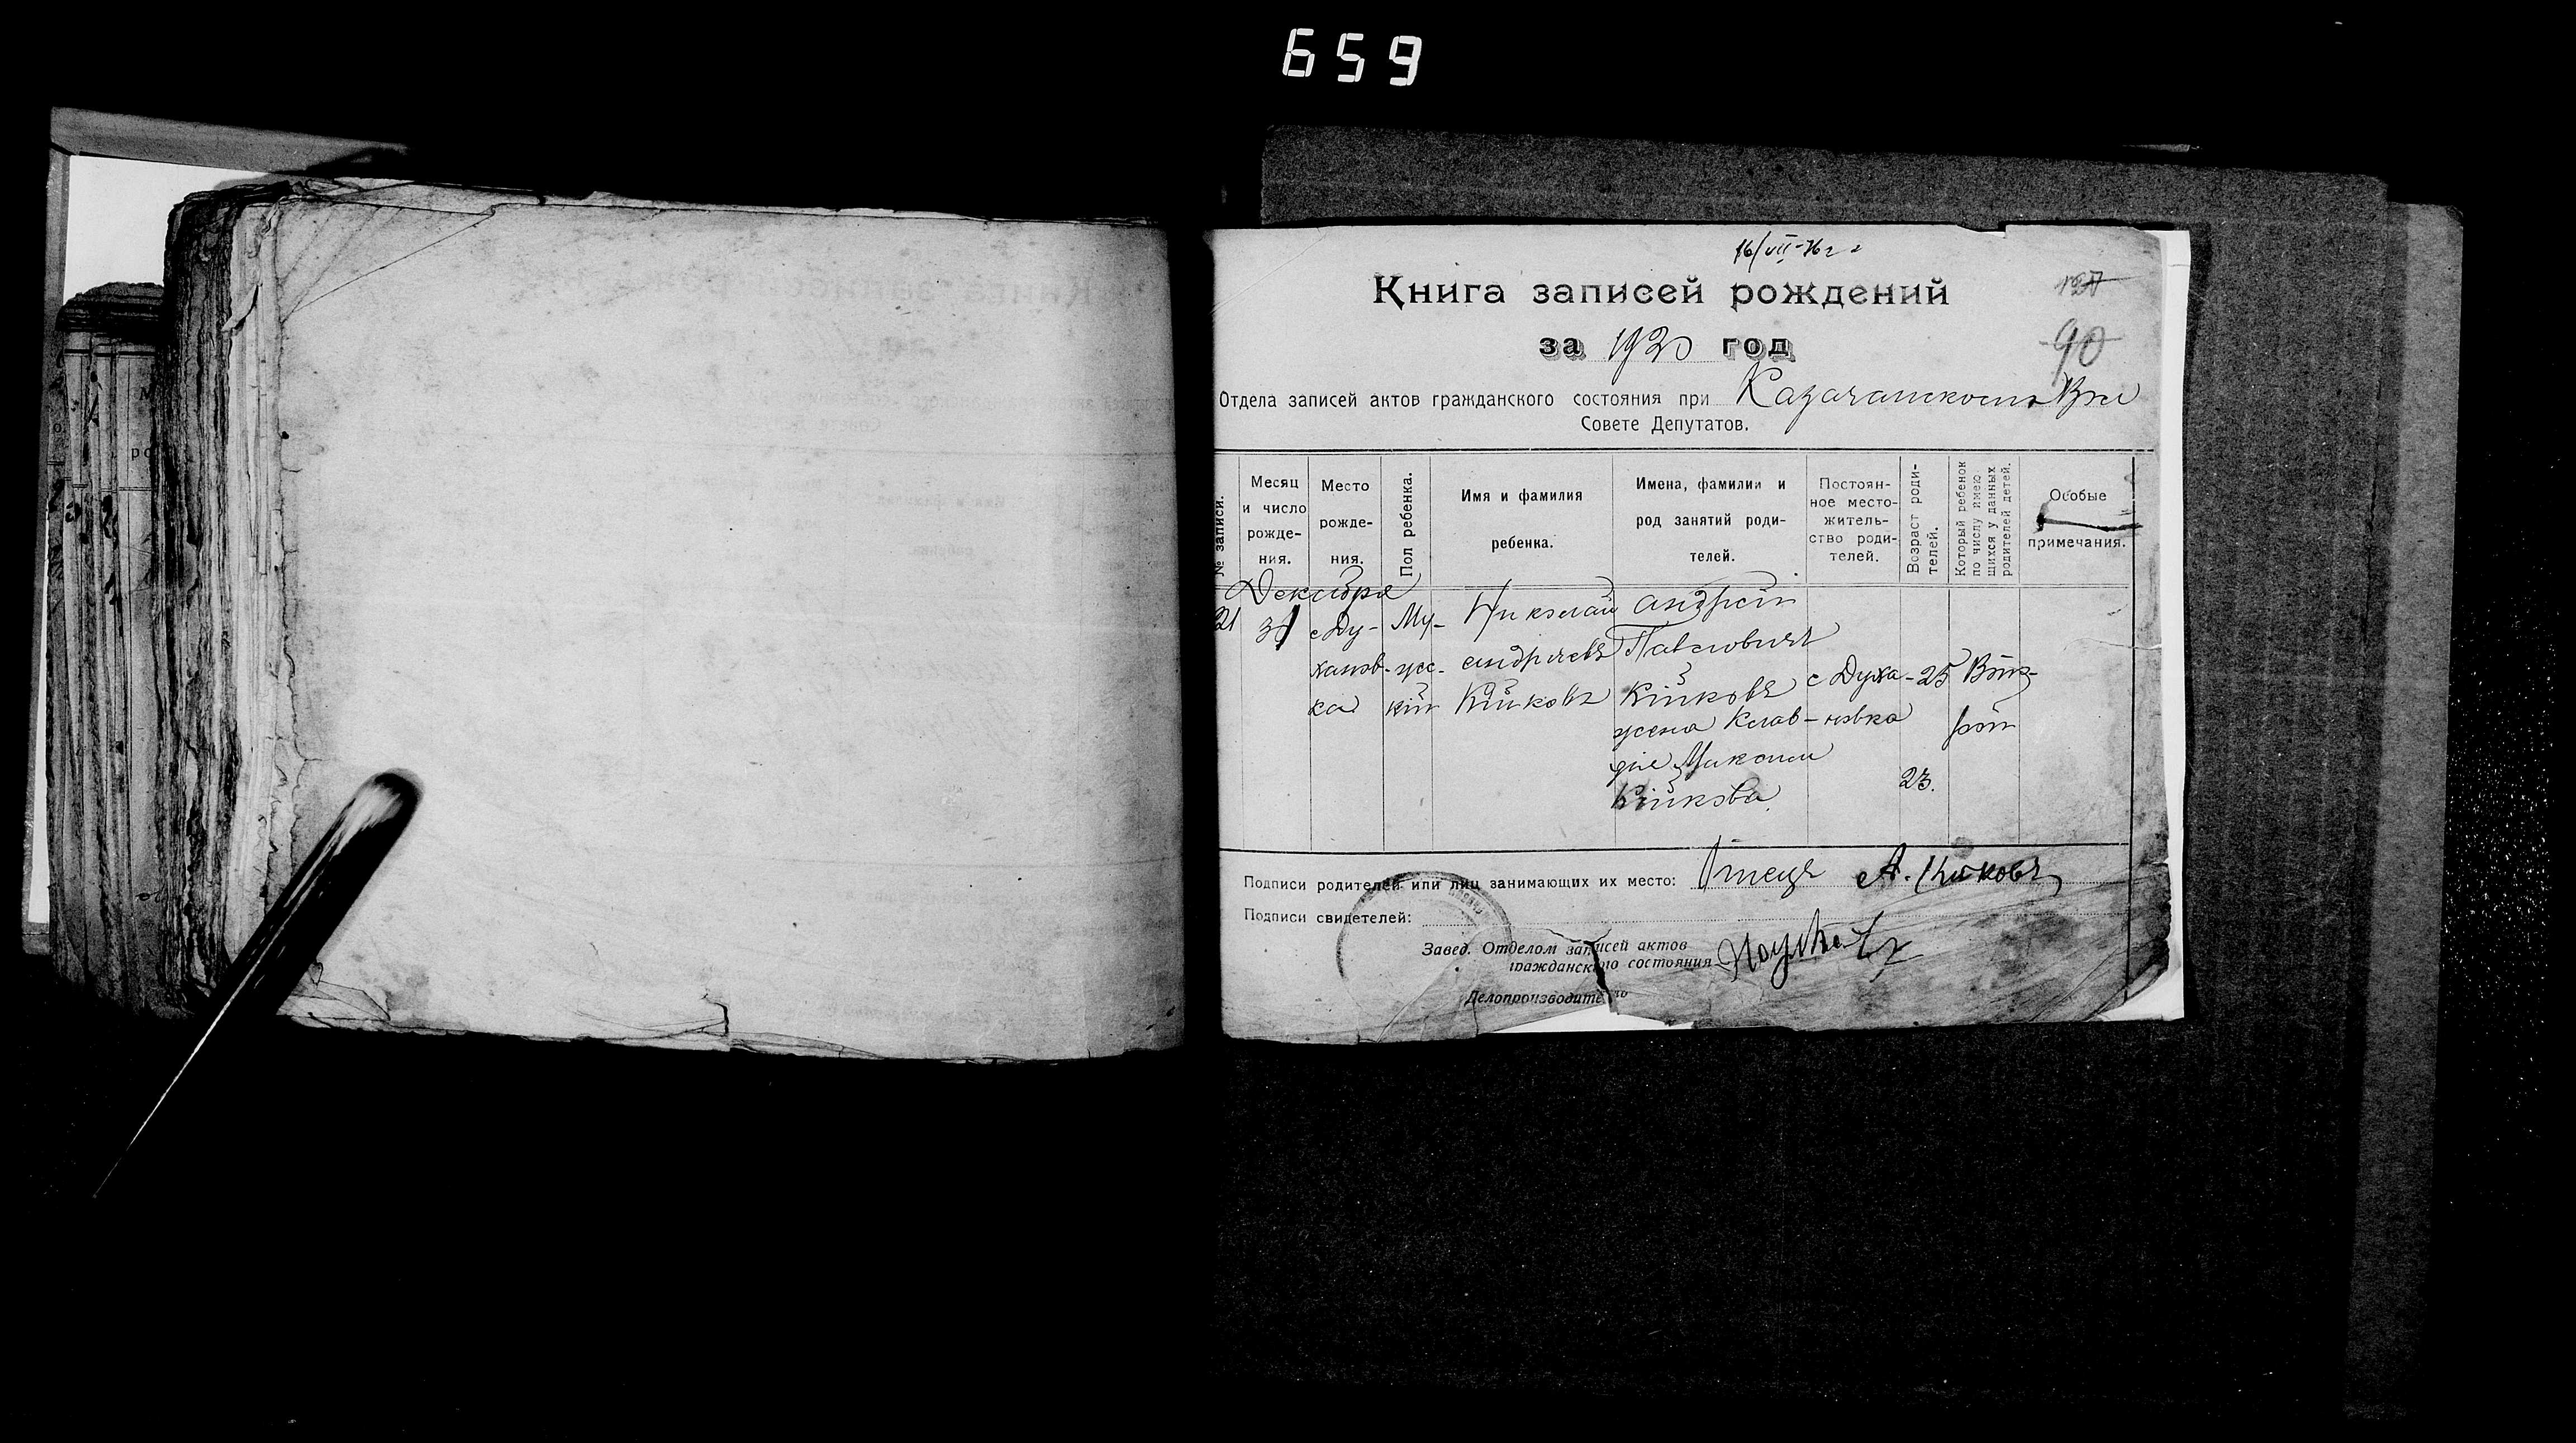 659
16/VII-76 г
Книга записей рождений
120
за 1920 год
90
Отдела записей актов гражданского состояния при Казачанском Вол
Совете Депутатов.
№ записи.
Месяц и число рожде-ния.
Место рожде-ния.
Пол ребенка.
Имя и фамилия ребенка.
Имена, фамилии и род занятий роди-телей.
Постоян-ное место-житель-ство роди-телей.
Возраст роди-телей.
Который ребенок по числу имею щихся у данных родителей детей.
Особые примечания.
Декабря
21 31 с Ду- Му- Николай Андрей
ханов- жс- Андреевъ Павловичъ
с Духа- 25 Вто-
ка кій Кійковъ Кійковъ
жена Клав- новка рой
дія
Кійкова 23.
Подписи родителей или лиц занимающих их место: Отецъ А. Кийковъ
Подписи свидетелей:
Завед. Отделом записей актов
гражданского состояния
Делопроизводите